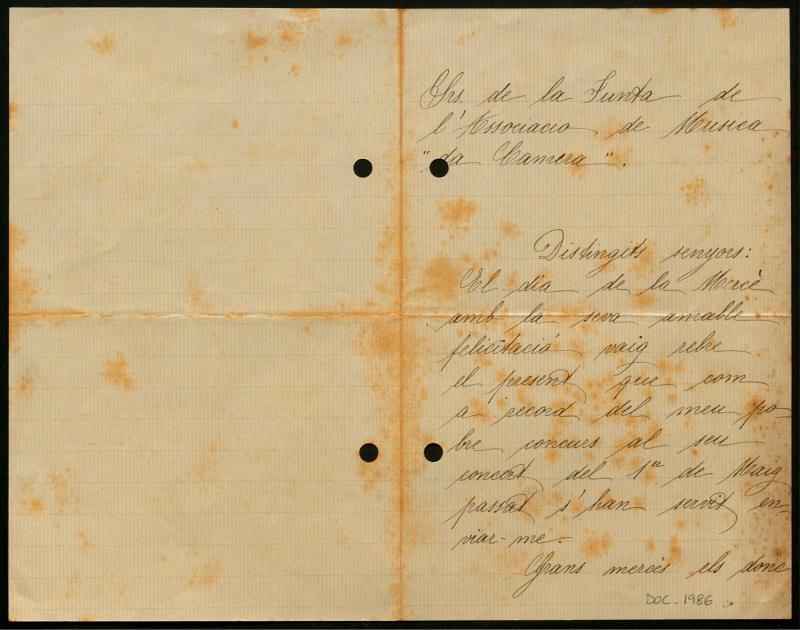 Chs. de la Junta de
l'Associacio de Musica
"da Camera".
Distingits senyors:
El dia de la Mercè
amb la seva amable
felicitació vaig rebre
el present que com
a record del meu po-
bre concurs al seu
concert del 1er de Maig
passat s'han servit en-
viar-me.-
Grans mercès els donc
DOC. 1986